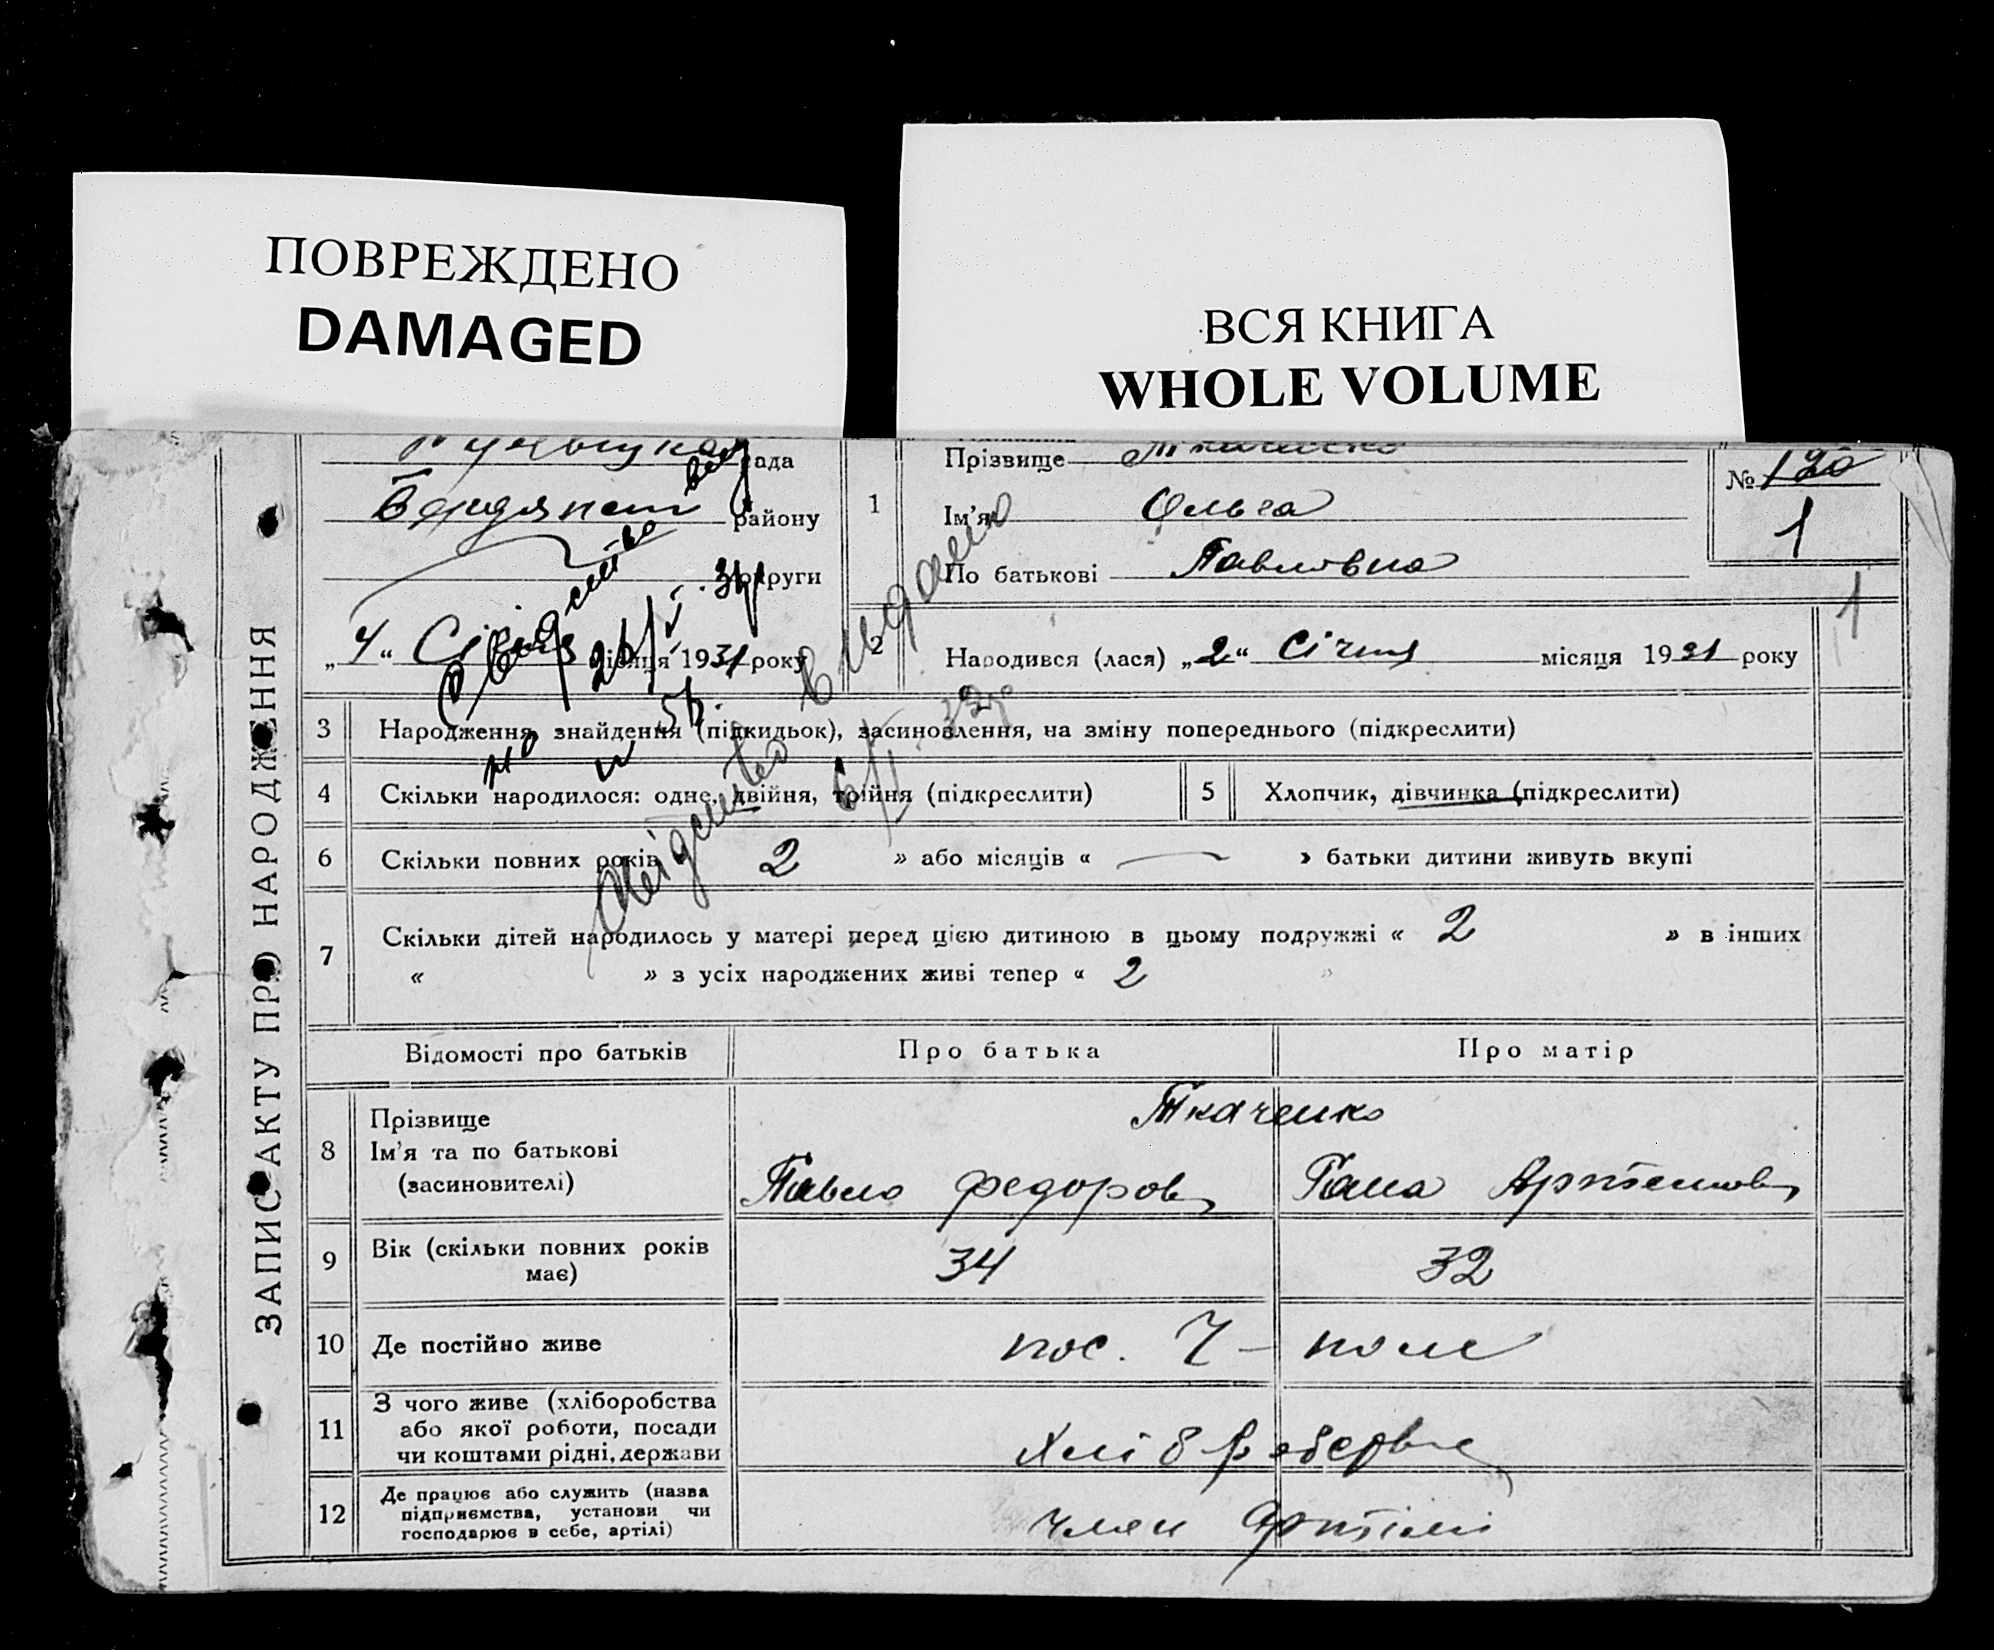 ПОВРЕЖДЕНО
DAMAGED
ВСЯ КНИГА
WHOLE VOLUME
ЗАПИС АКТУ ПРО НАРОДЖЕННЯ
рада
району
округи
„4“ Січня місяця 1931 року
1
Прізвище Ткаченко
Ім'я Ольга
По батькові Павловна
№ 120
1
1
2
Народився (лася) „2“ Січня місяця 1931 року
Свідоцтво видано
3 Народження, знайдення (підкидьок), засиновлення, на зміну попереднього (підкреслити)
4 Скільки народилося: одне, двійня, трійня (підкреслити)
5 Хлопчик, дівчинка (підкреслити)
6 Скільки повних років 2 » або місяців « — » батьки дитини живуть вкупі
7 Скільки дітей народилось у матері перед цією дитиною в цьому подружжі « 2 » в інших
« » з усіх народжених живі тепер « 2 »
Відомості про батьків
Про батька
Про матір
8 Прізвище
Ім'я та по батькові
(засиновителі)
Ткаченко
Павло Федоров
Гана Артемов
9 Вік (скільки повних років
має)
34
32
10 Де постійно живе
пос. 7 - поле
11 З чого живе (хліборобства
або якої роботи, посади
чи коштами рідні, держави
12 Де працює або служить (назва
підприємства, установи чи
господарює в себе, артілі)
член Артілі